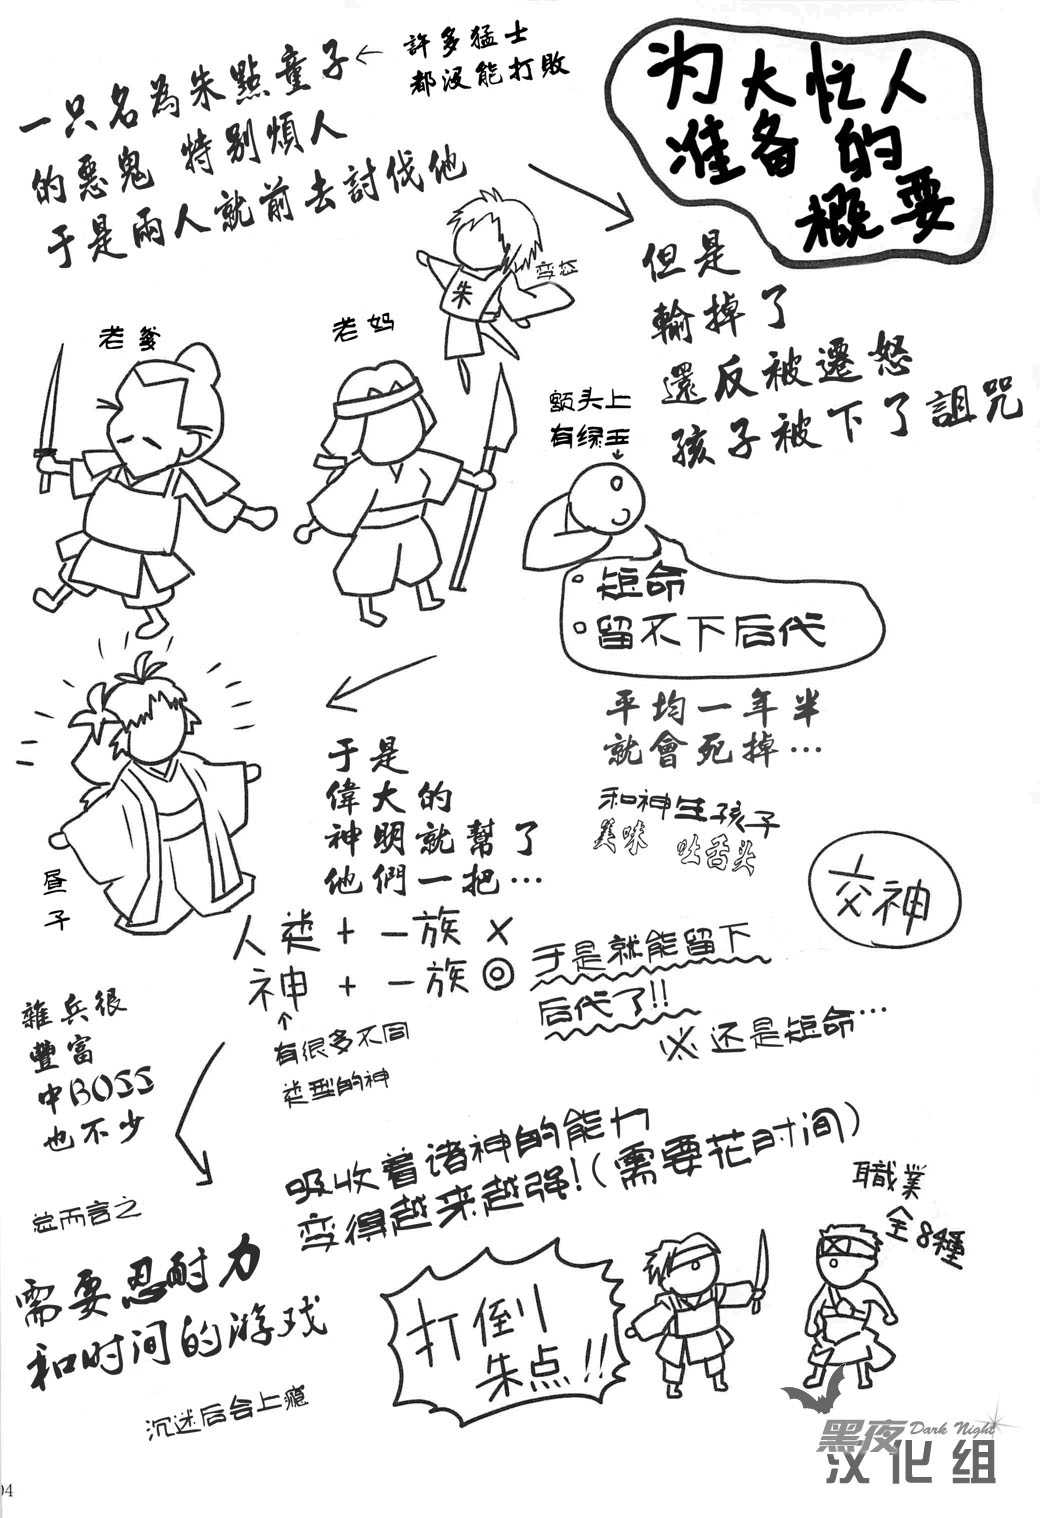 为大忙人
准备的
概要
許多猛士
都没能打敗
一只名為朱點童子←
的惡鬼 特別煩人
于是兩人就前去討伐他
朱
老爹
老妈
但是
輸掉了
還反被遷怒
孩子被下了詛咒
额头上
有绿玉
短命
留不下后代
平均一年半
就會死掉…
和神生孩子
美味 吐舌头
交神
于是
偉大的
神明就幫了
他們一把…
昼子
人类+一族×
神+一族◎
↑
有很多不同
类型的神
于是就能留下
后代了!!
※还是短命…
雜兵很
豐富
中BOSS
也不少
吸收着诸神的能力
变得越来越强!(需要花时间)
职業
全8種
总而言之
需要忍耐力
和时间的游戏
沉迷后会上瘾
打倒
朱点!!
黑夜 Dark Night
汉化组
04